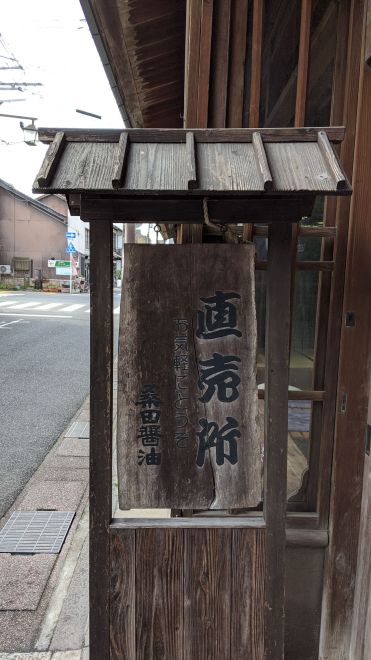 直売所
お気軽にどうぞ
桑田醤油